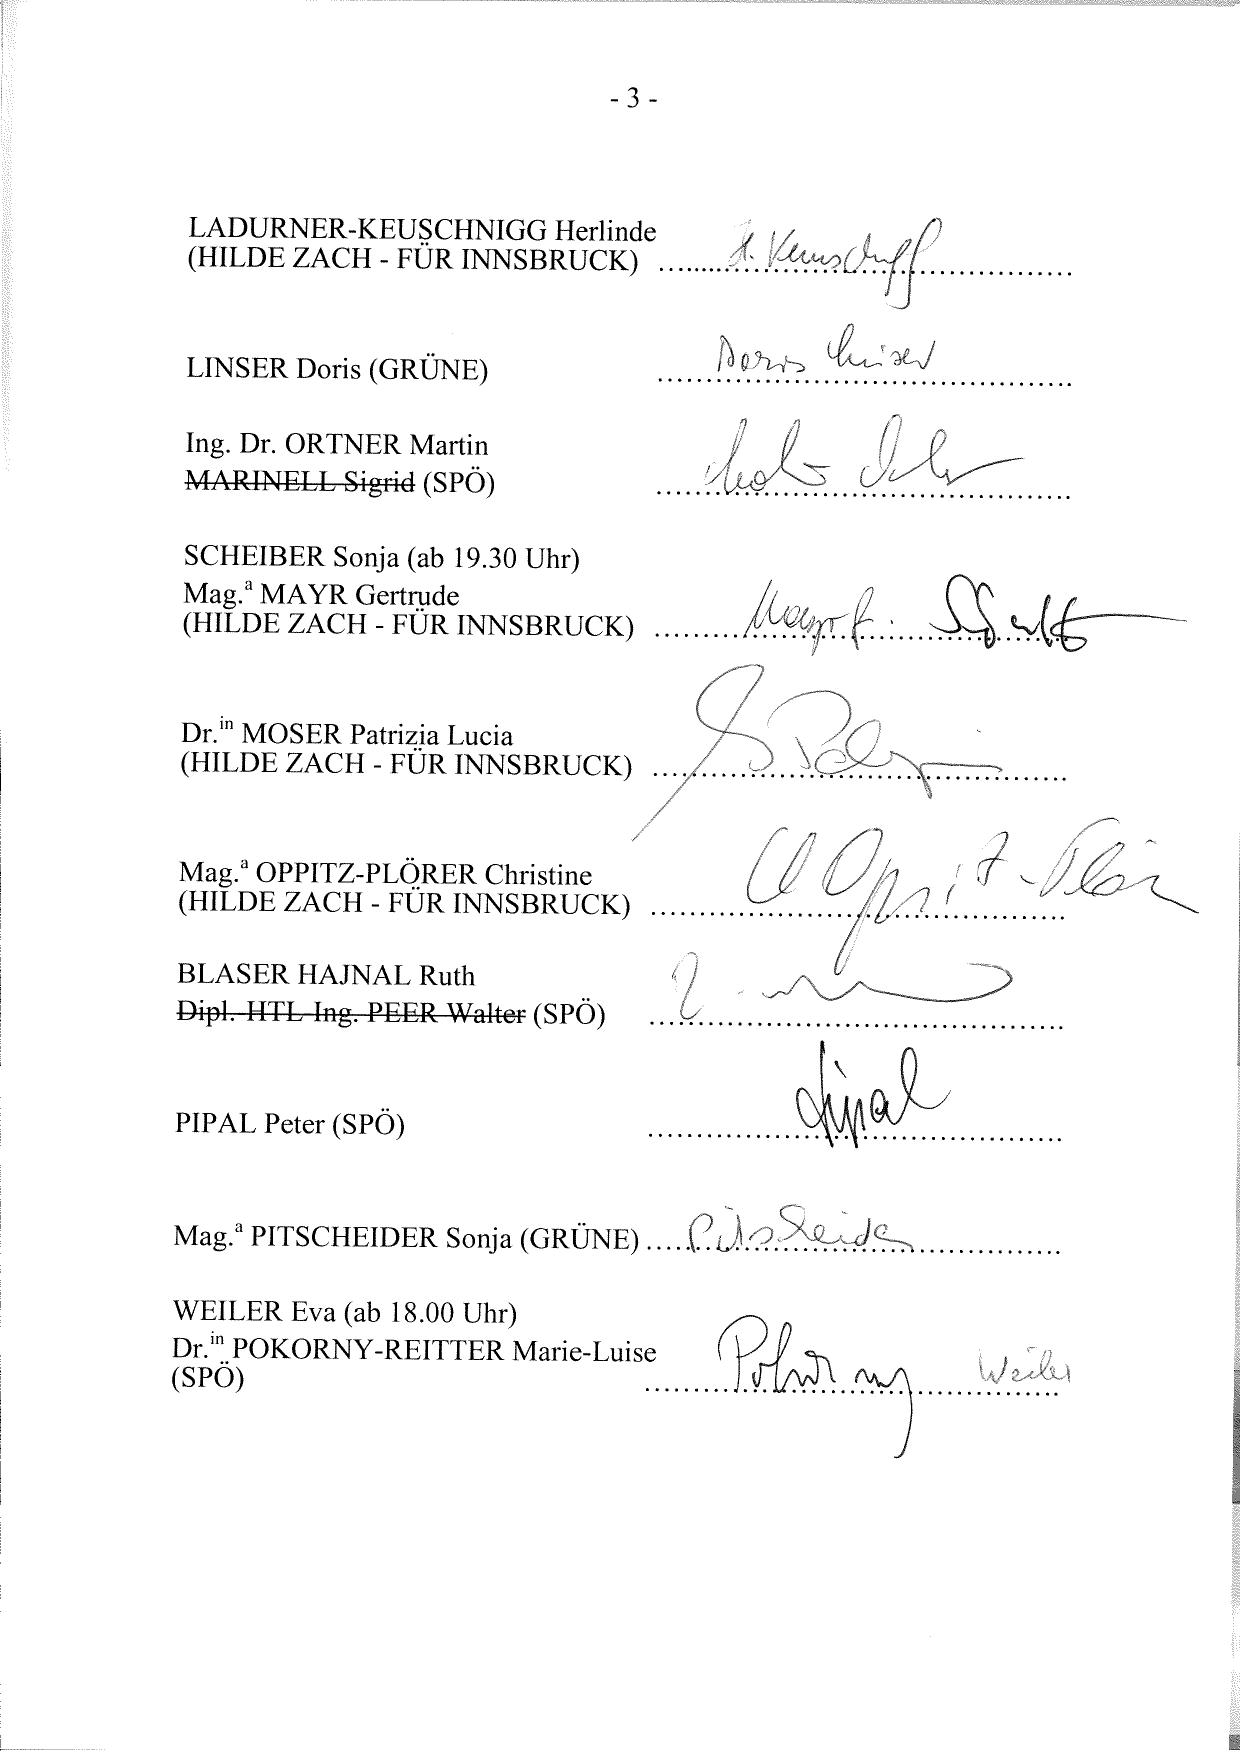 - 3 -
LADURNER-KEUSCHNIGG Herlinde
(HILDE ZACH - FÜR INNSBRUCK) ........ H. Keuschnigg ........
LINSER Doris (GRÜNE) ........ Doris Linser ........
Ing. Dr. ORTNER Martin
MARINELL Sigrid (SPÖ) ................
SCHEIBER Sonja (ab 19.30 Uhr)
Mag.ª MAYR Gertrude
(HILDE ZACH - FÜR INNSBRUCK) ........ Mayr ........
Dr.in MOSER Patrizia Lucia
(HILDE ZACH - FÜR INNSBRUCK) ................
Mag.ª OPPITZ-PLÖRER Christine
(HILDE ZACH - FÜR INNSBRUCK) ........ Oppitz-Plör
BLASER HAJNAL Ruth
Dipl.-HTL-Ing. PEER Walter (SPÖ) ................
PIPAL Peter (SPÖ) ........ Pipal ........
Mag.ª PITSCHEIDER Sonja (GRÜNE) ........ Pitscheider ........
WEILER Eva (ab 18.00 Uhr)
Dr.in POKORNY-REITTER Marie-Luise
(SPÖ) ........ Pokorny ........ Weiler